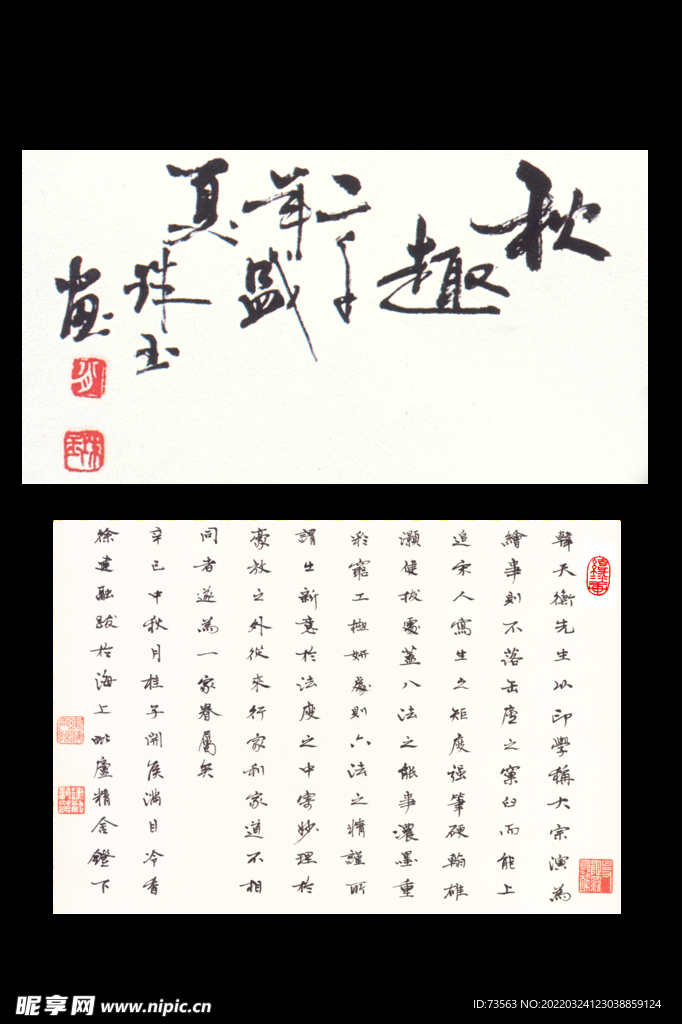 秋趣
二千年盛夏
珠玉
画
韓天衡先生以印學稱大宗演為
繪事則不落缶廬之窠臼而能上
追宋人寫生之矩度强筆硬翰雄
灝健拔處蓋八法之能事濃墨重
彩窮工極妍處則六法之精謹所
謂出新意於法度之中寄妙理於
豪放之外從來行家利家道不相
同者遂為一家眷屬矣
辛巳中秋月桂子開候滿目冷香
徐建融跋於海上毗廬精舍鐙下
昵享网 www.nipic.cn
ID:73563 NO:20220324123038859124